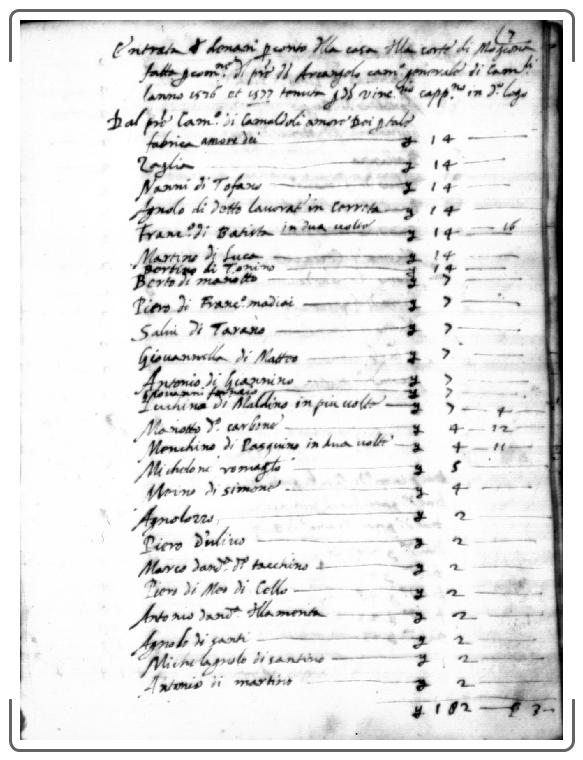 17
Entrata di denari p conto della casa della corte di Moscona
fatta p comne di pre d Arcangelo camo generale di Camli
lanno 1576 et 1577 tenuta p ds vinc capp in do logo
Dal pre Camo di Camaldoli amore Dei p tale
fabrica amore dei y 14
Zaglia y 14
Nanni di Tofano y 14
Agnolo di detto lavorat in Correta y 14
Franco di Batista in dua volte y 14 16
Martino di Luca y 14
Bertino di Tonino y 14
Berto di mariotto y 7
Piero di Franco madiai y 7
Salvi di Tarano y 7
Giovannella di Matteo y 7
Antonio di Giannino y 7
Giovanni fornaio y 7
Pucchino di Maldino in piu volte y 7 4
Mariotto do carbone y 4 12
Monchino di Pasquino in dua volte y 4 11
Michelone romag y 5
Meino di simone y 4
Agnolozzo y 2
Piero d'ulivo y 2
Marco dando do tacchino y 2
Piero di Meo di Cello y 2
Antonio dando della menta y 2
Agnolo di santi y 2
Michelagnolo di santino y 2
Antonio di martino y 2
y 182 3